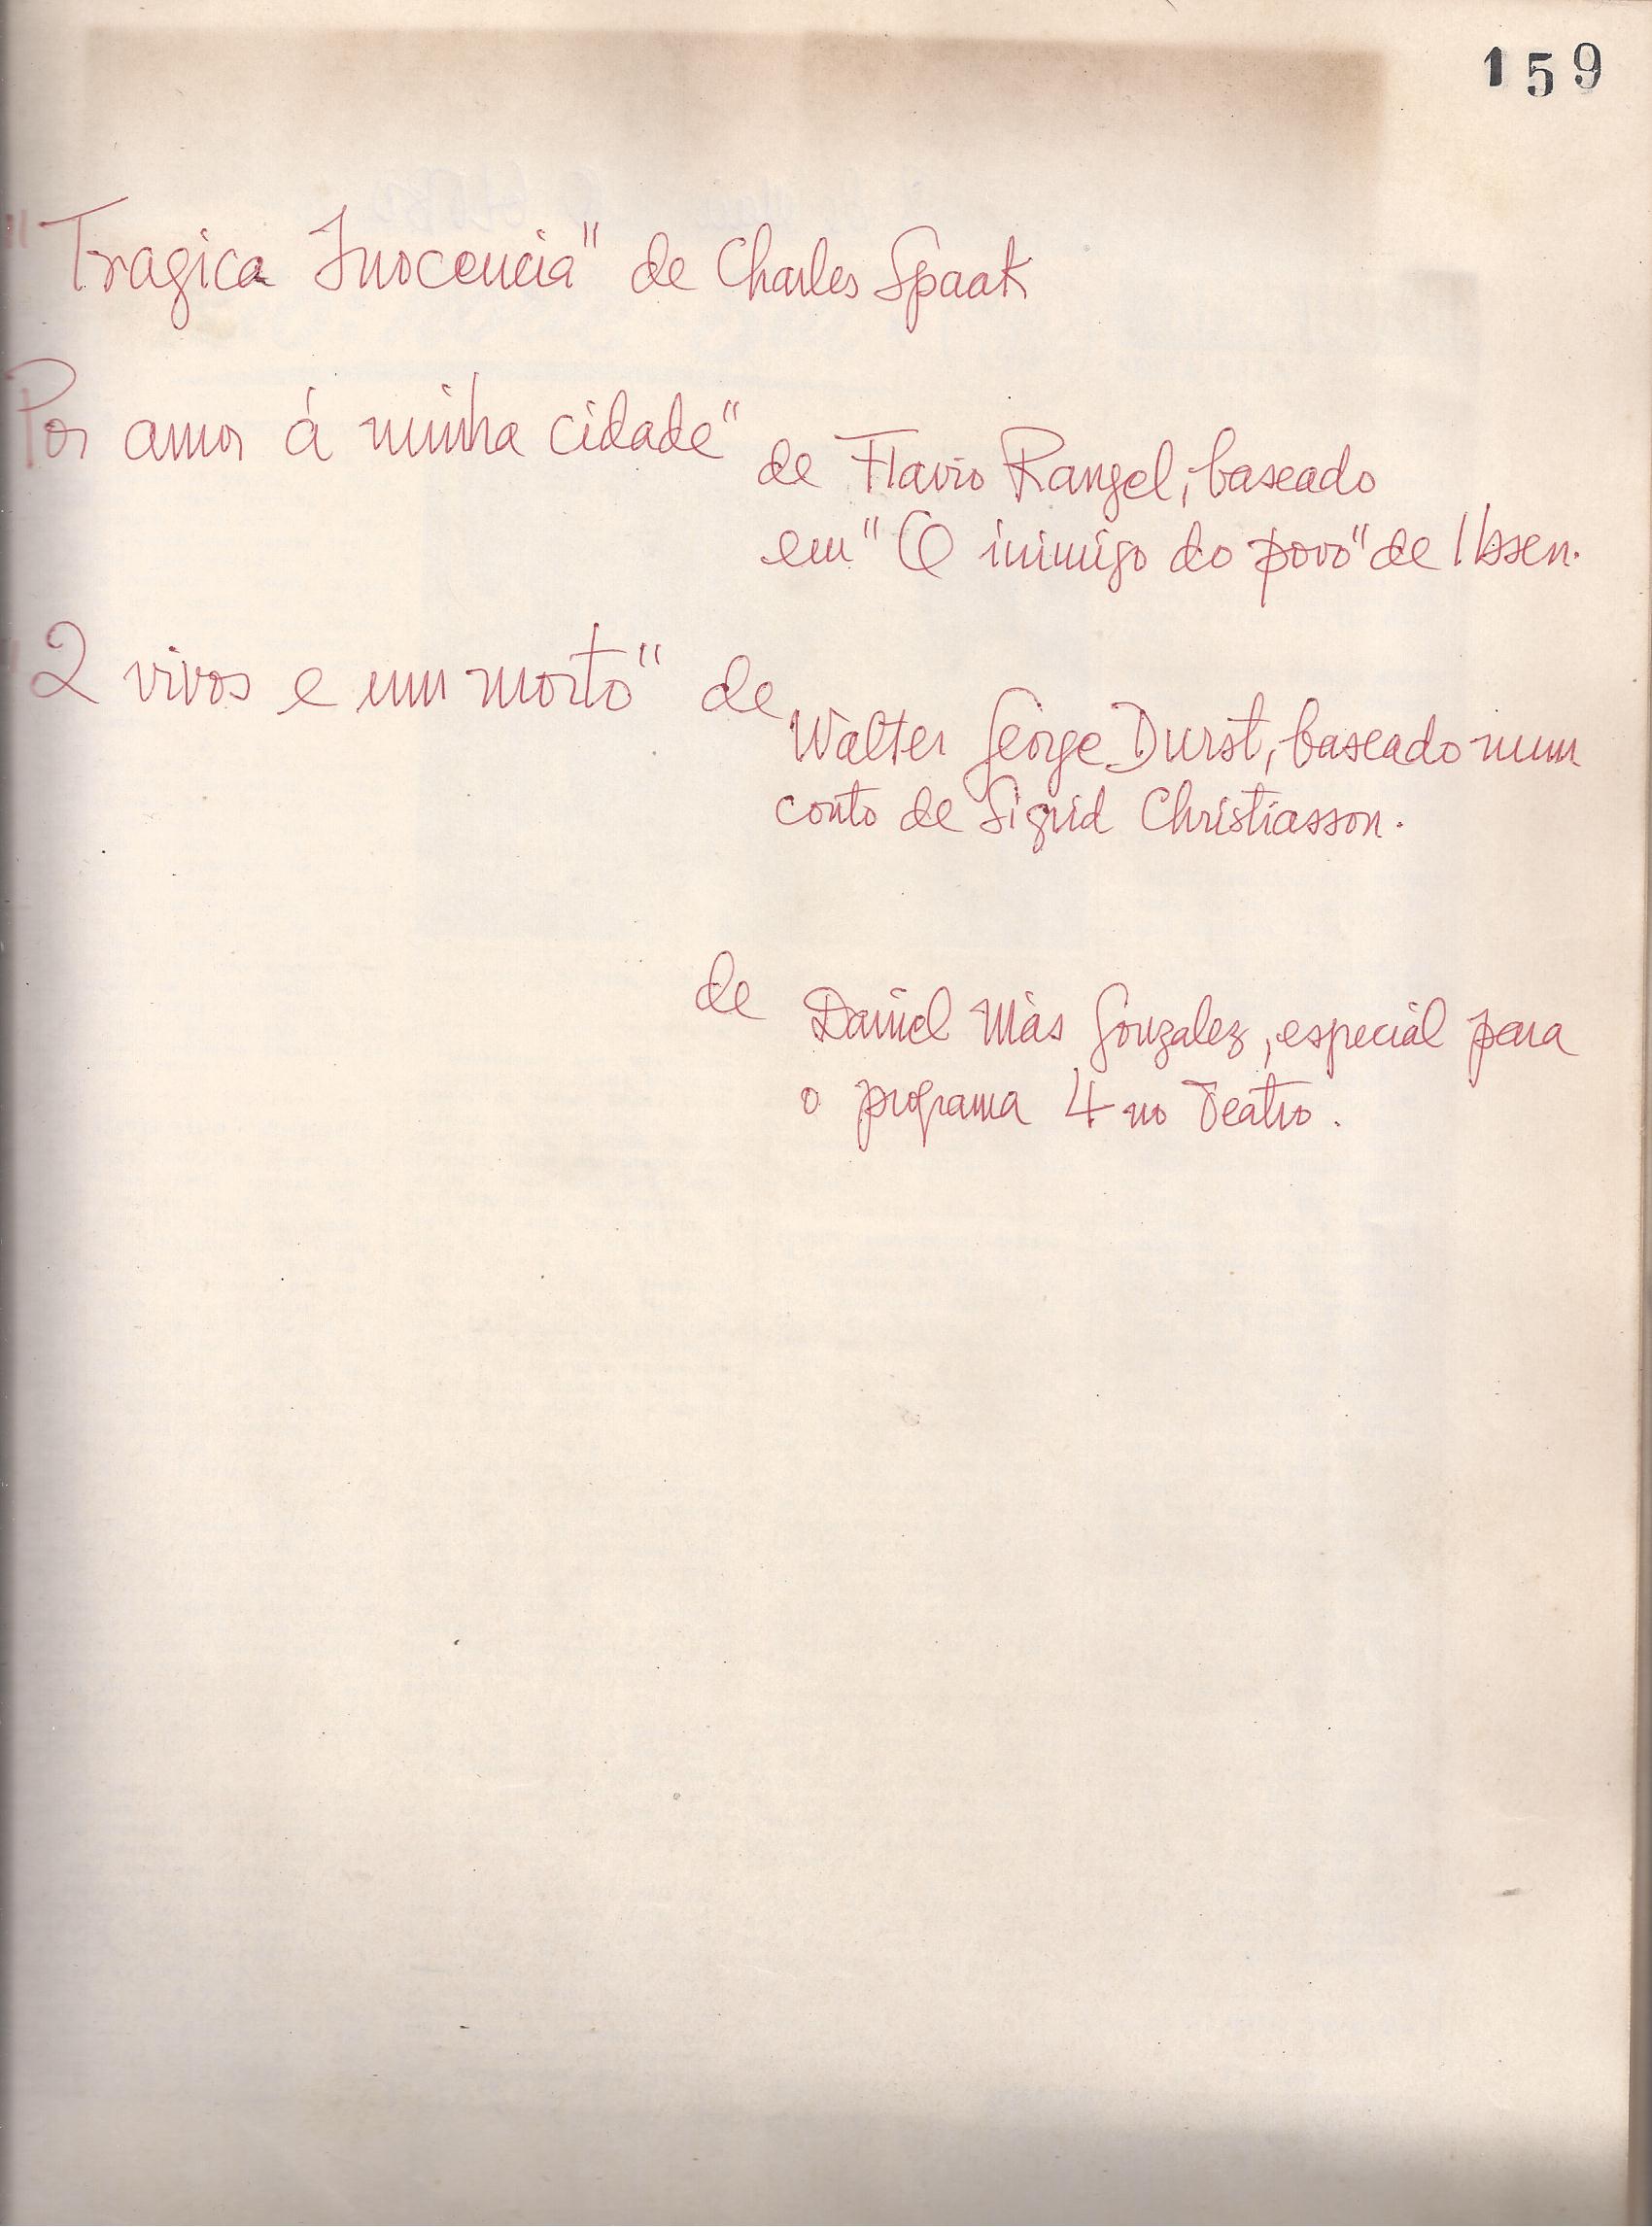 159
"Tragica Inocencia" de Charles Spaak
Por amor á minha cidade"
de Flavio Rangel, baseado
em "O inimigo do povo" de Ibsen.
"2 vivos e um morto" de
Walter George Durst, baseado num
conto de Sigrid Christiasson.
de Daniel Más Gonzalez, especial para
o programa 4 no Teatro.